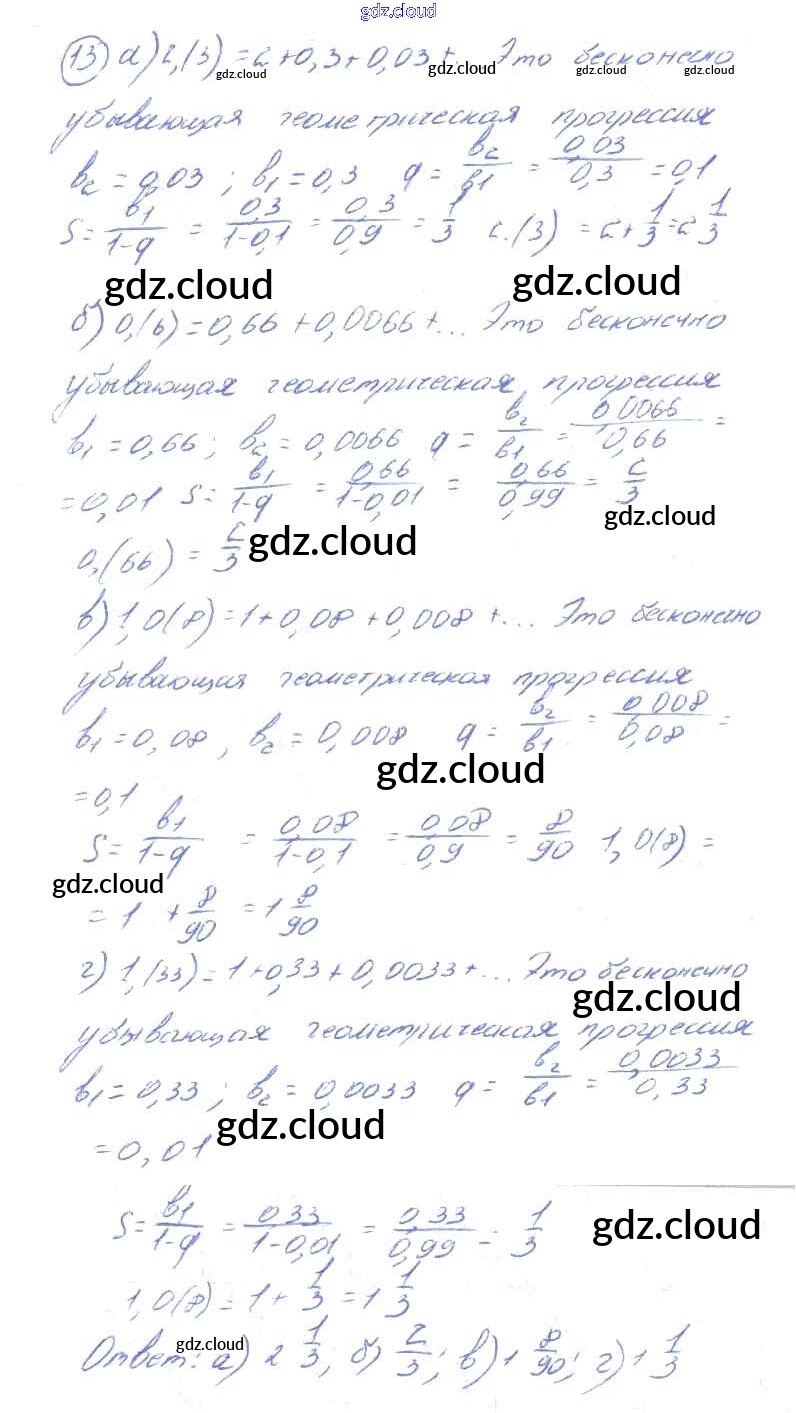 gdz.cloud
13 а) 2,(3) = 2 + 0,3 + 0,03 + ... Это бесконечно
gdz.cloud gdz.cloud gdz.cloud gdz.cloud
убывающая геометрическая прогрессия
b₂ = 0,03 ; b₁ = 0,3 q = b₂/b₁ = 0,03/0,3 = 0,1
S = b₁/1-q = 0,3/1-0,1 = 0,3/0,9 = 1/3 2.(3) = 2 + 1/3 = 2 1/3
gdz.cloud gdz.cloud
б) 0,(6) = 0,66 + 0,0066 + ... Это бесконечно
убывающая геометрическая прогрессия
b₁ = 0,66 ; b₂ = 0,0066 q = b₂/b₁ = 0,0066/0,66 =
= 0,01 S = b₁/1-q = 0,66/1-0,01 = 0,66/0,99 = 2/3
gdz.cloud
0,(66) = 2/3 gdz.cloud
в) 1,0(8) = 1 + 0,08 + 0,008 + ... Это бесконечно
убывающая геометрическая прогрессия
b₁ = 0,08 , b₂ = 0,008 q = b₂/b₁ = 0,008/0,08 =
gdz.cloud
= 0,1
S = b₁/1-q = 0,08/1-0,1 = 0,08/0,9 = 8/90 1,0(8) =
gdz.cloud
= 1 + 8/90 = 1 8/90
г) 1,(33) = 1 + 0,33 + 0,0033 + ... Это бесконечно
gdz.cloud
убывающая геометрическая прогрессия
b₁ = 0,33 ; b₂ = 0,0033 q = b₂/b₁ = 0,0033/0,33
gdz.cloud
= 0,01
S = b₁/1-q = 0,33/1-0,01 = 0,33/0,99 = 1/3
gdz.cloud
1,0(8) = 1 + 1/3 = 1 1/3
Ответ: а) 2 1/3, б) 2/3; в) 1 8/90; г) 1 1/3
gdz.cloud